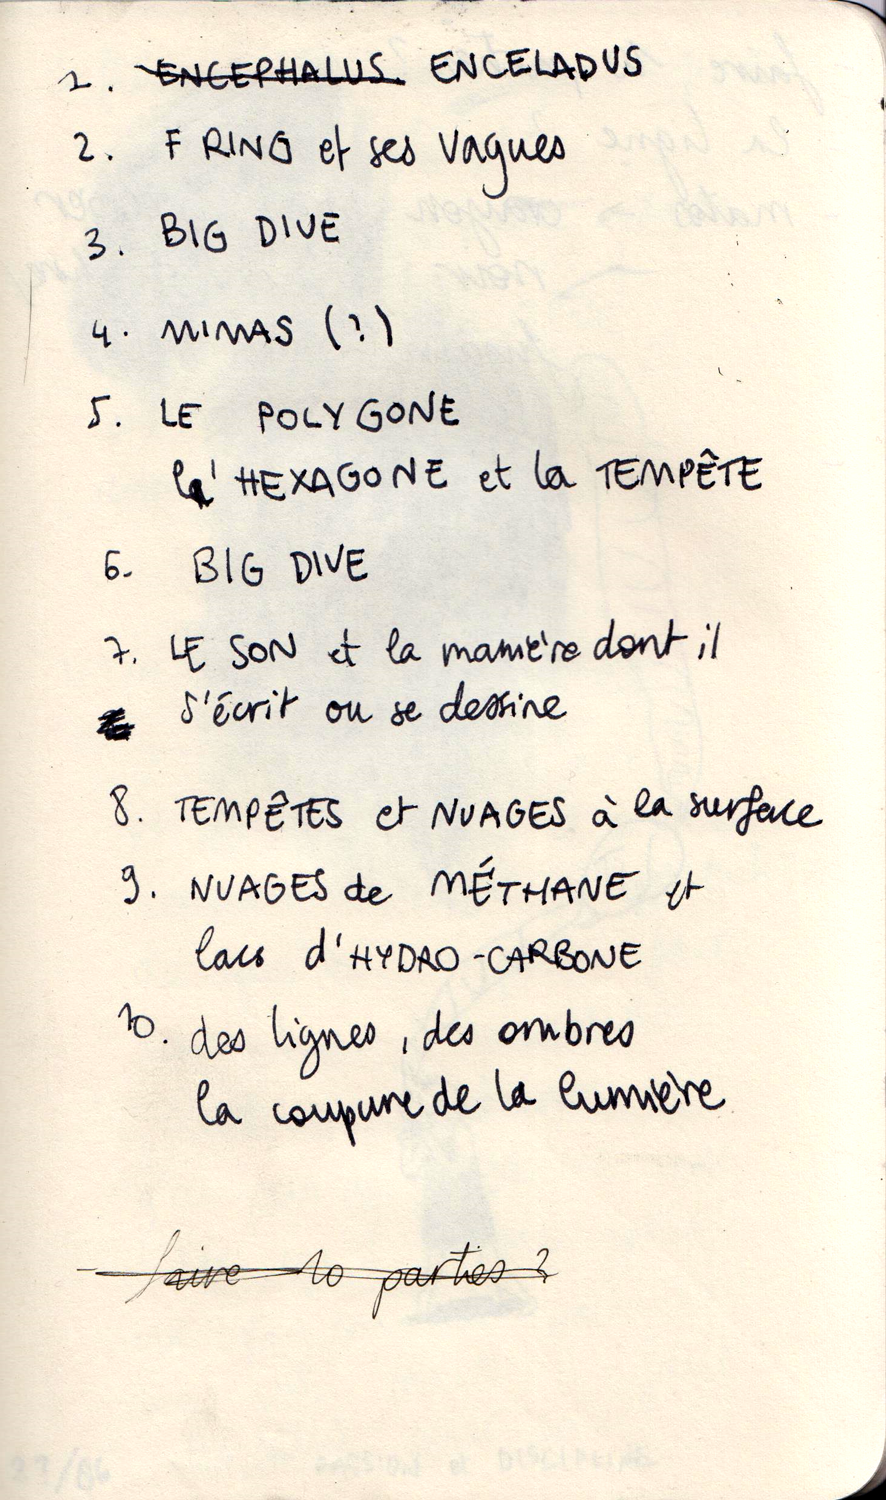 1. ENCEPHALUS ENCELADUS
2. F RING et ses vagues
3. BIG DIVE
4. MIMAS (?)
5. LE POLYGONE
l'HEXAGONE et la TEMPÊTE
6. BIG DIVE
7. LE SON et la manière dont il
s'écrit ou se dessine
8. TEMPÊTES et NUAGES à la surface
9. NUAGES de MÉTHANE et
lacs d'HYDRO-CARBONE
10. des lignes, des ombres
la coupure de la lumière
- faire 10 parties ?